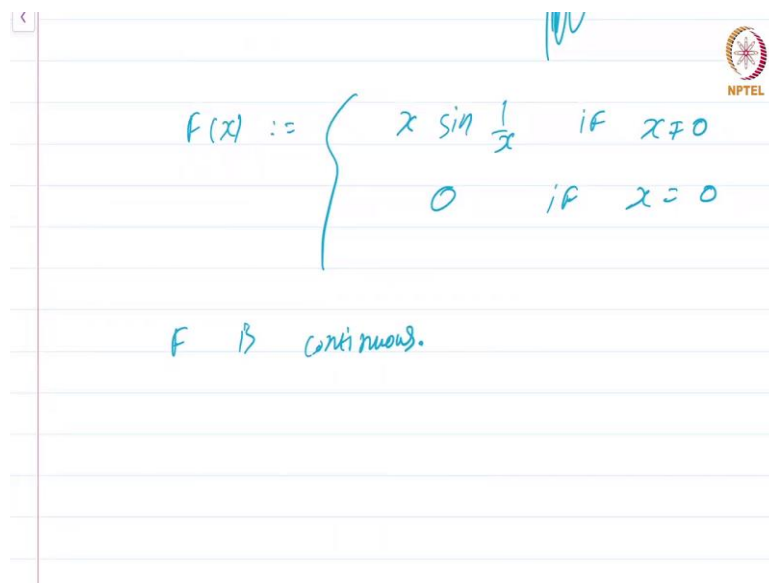 NPTEL
F(x) := { x sin 1/x if x ≠ 0
0 if x = 0
F is continuous.